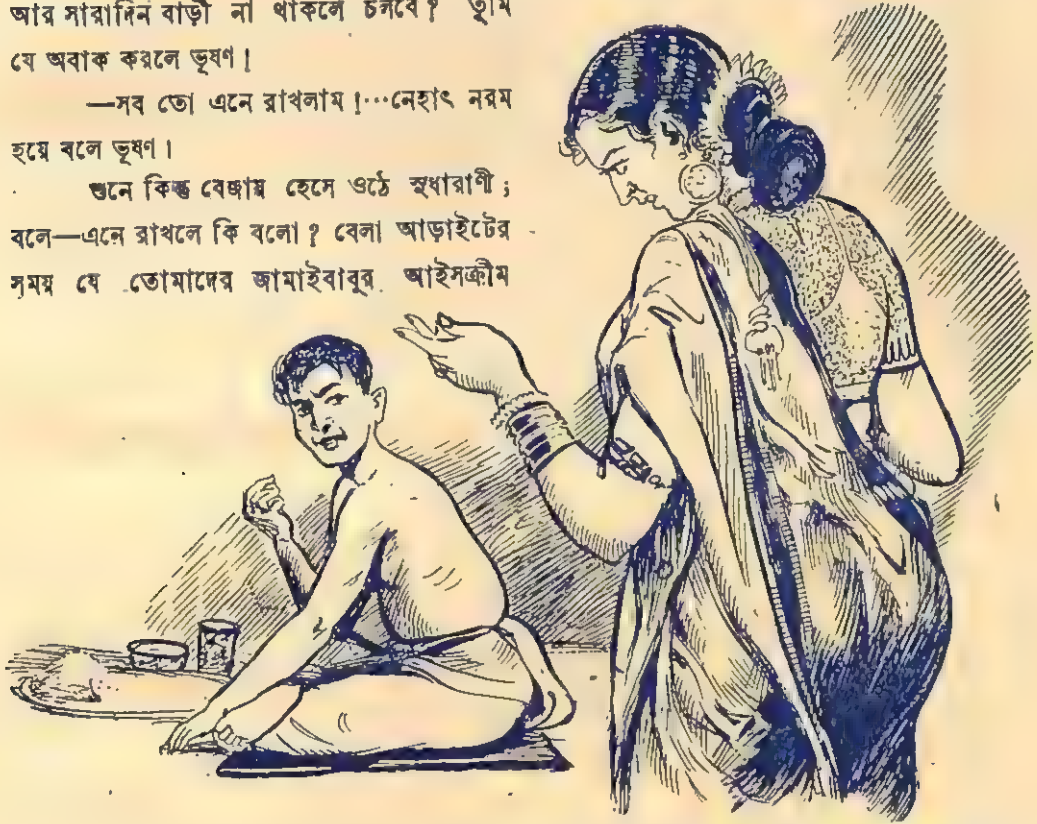 আর সারাদিন বাড়ী না থাকলে চলবে? তুমি
যে অবাক করলে ভূষণ!
—সব তো এনে রাখলাম!···নেহাৎ নরম
হয়ে বলে ভূষণ।
শুনে কিন্তু বেজায় হেসে ওঠে সুধারাণী;
বলে—এনে রাখলে কি বলো? বেলা আড়াইটের
সময় যে তোমাদের জামাইবাবুর আইসক্রীম